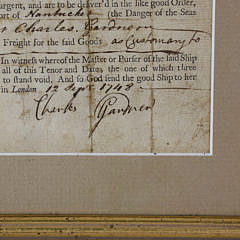 argent, and to be deliver'd in the like good Order,
ort of Nantucket (the Danger of the Seas
Charles Gardner
Freight for the said Goods as Customary to
In witness whereof the Master or Purser of the said Ship
all of this Tenor and Date, the one of which three
to stand void. And so God send the good Ship to her
in London 12 Sept 1748.
Charles Gardner